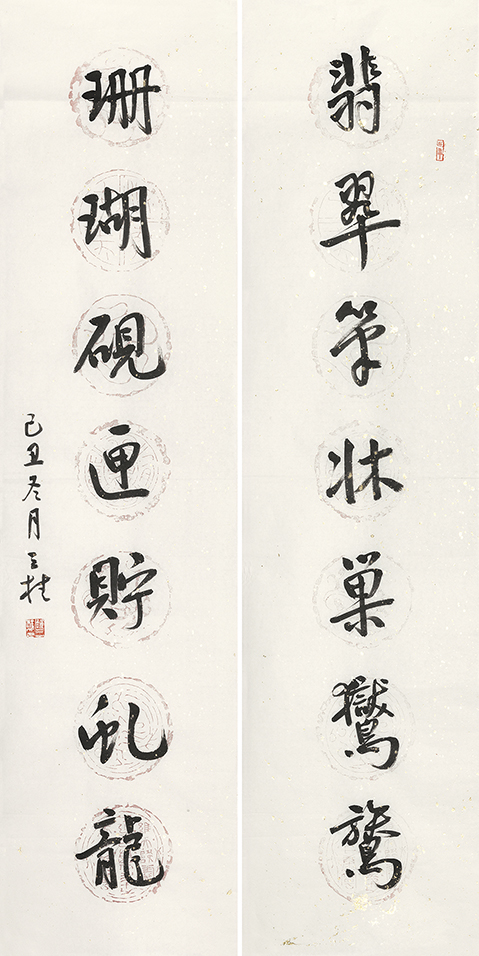 翡翠筆牀巢鸑鷟
珊瑚硯匣貯虬龍
己丑冬月